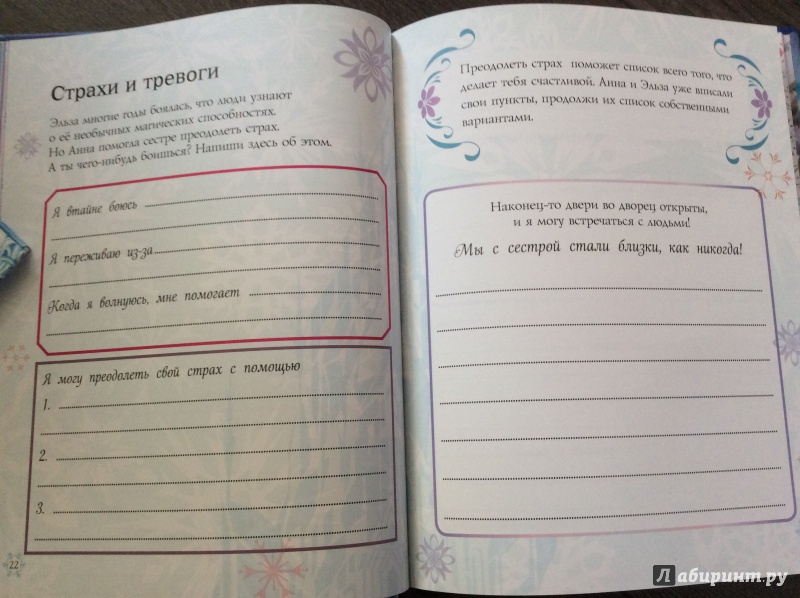 Страхи и тревоги
Эльза многие годы боялась, что люди узнают
о её необычных магических способностях.
Но Анна помогла сестре преодолеть страх.
А ты чего-нибудь боишься? Напиши здесь об этом.
Я втайне боюсь
Я переживаю из-за
Когда я волнуюсь, мне помогает
Я могу преодолеть свой страх с помощью
1.
2.
3.
22
Преодолеть страх поможет список всего того, что
делает тебя счастливой. Анна и Эльза уже вписали
свои пункты, продолжи их список собственными
вариантами.
Наконец-то двери во дворец открыты,
и я могу встречаться с людьми!
Мы с сестрой стали близки, как никогда!
Лабиринт.ру